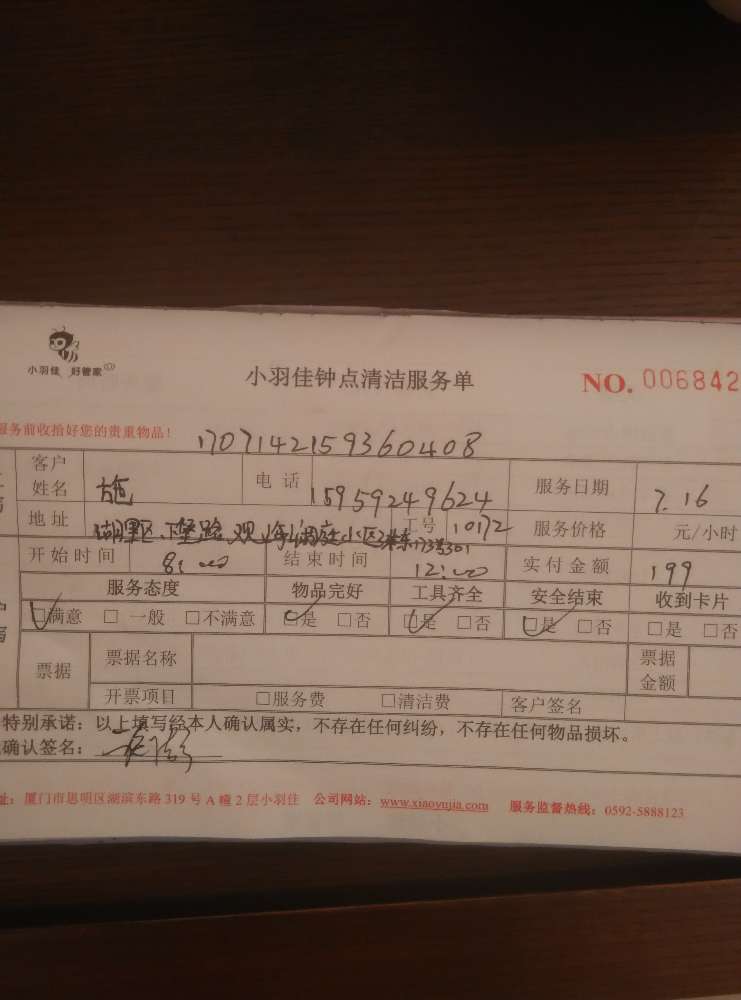 小羽佳 好管家
小羽佳钟点清洁服务单
NO. 006842
服务前收拾好您的贵重物品！
1707142159360408
客户姓名 施 电话 15959249624 服务日期 7.16
地址 湖里区 小区 工号 10172 服务价格 元/小时
开始时间 8:00 结束时间 12:00 实付金额 199
服务态度 物品完好 工具齐全 安全结束 收到卡片
☑满意 □ 一般 □不满意 ☑是 □否 ☑是 □否 ☑是 □否 □是 □否
票据 票据名称 票据金额
开票项目 □服务费 □清洁费 客户签名
特别承诺：以上填写经本人确认属实，不存在任何纠纷，不存在任何物品损坏。
确认签名：
址：厦门市思明区湖滨东路 319 号 A 幢 2 层小羽佳 公司网站：www.xiaoyujia.com 服务监督热线：0592-5888123